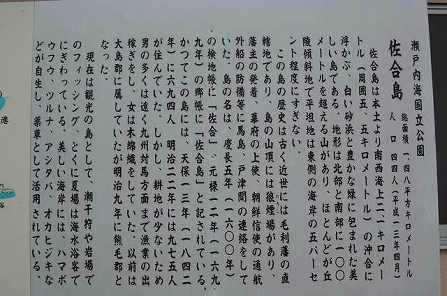 瀬戸内海国立公園
佐合島
総面積 一.四八平方キロメートル
人口 四四人(平成一三年四月)
佐合島は本土より南西海上二.二キロメー
トル(周囲五.五キロメートル)の沖合に
浮かぶ、白い砂浜と豊かな緑に包まれた美
しい島である。地形は北部と南部に一〇〇
メートルを超える山があり、ほとんどが丘
陵傾斜地で平坦地は東側の海岸の五パーセ
ント程度にすぎない。
この島の歴史は古く近世には毛利藩の直
轄地であり、島の山頂には狼煙場があり、
藩主の発着、幕府の上使、朝鮮信使の通航
外船の防備等に馬島、戸津間の連絡をして
いた。島の名は、慶長五年(一六〇〇年)
の検地帳に「佐合」、元禄一二年(一六九
九年)の郷帳に「佐合島」と記されている。
かつてこの島には、天保一三年(一八四二
年)に六九四人、明治二二年には九七五人
が住んでいた。しかし、耕地が少ないため
男の多くは遠く九州対馬方面まで漁業の出
稼ぎをし、女は木綿織をしていた。以前は
大島郡に属していたが明治九年に熊毛郡と
なった。
現在は観光の島として、潮干狩や岩場で
のフィッシング、とくに夏場は海水浴客で
にぎわっている。美しい海岸には、ハマボ
ウフウ、ツルナ、アシタバ、オカヒジキな
どが自生し、薬草として活用されている。